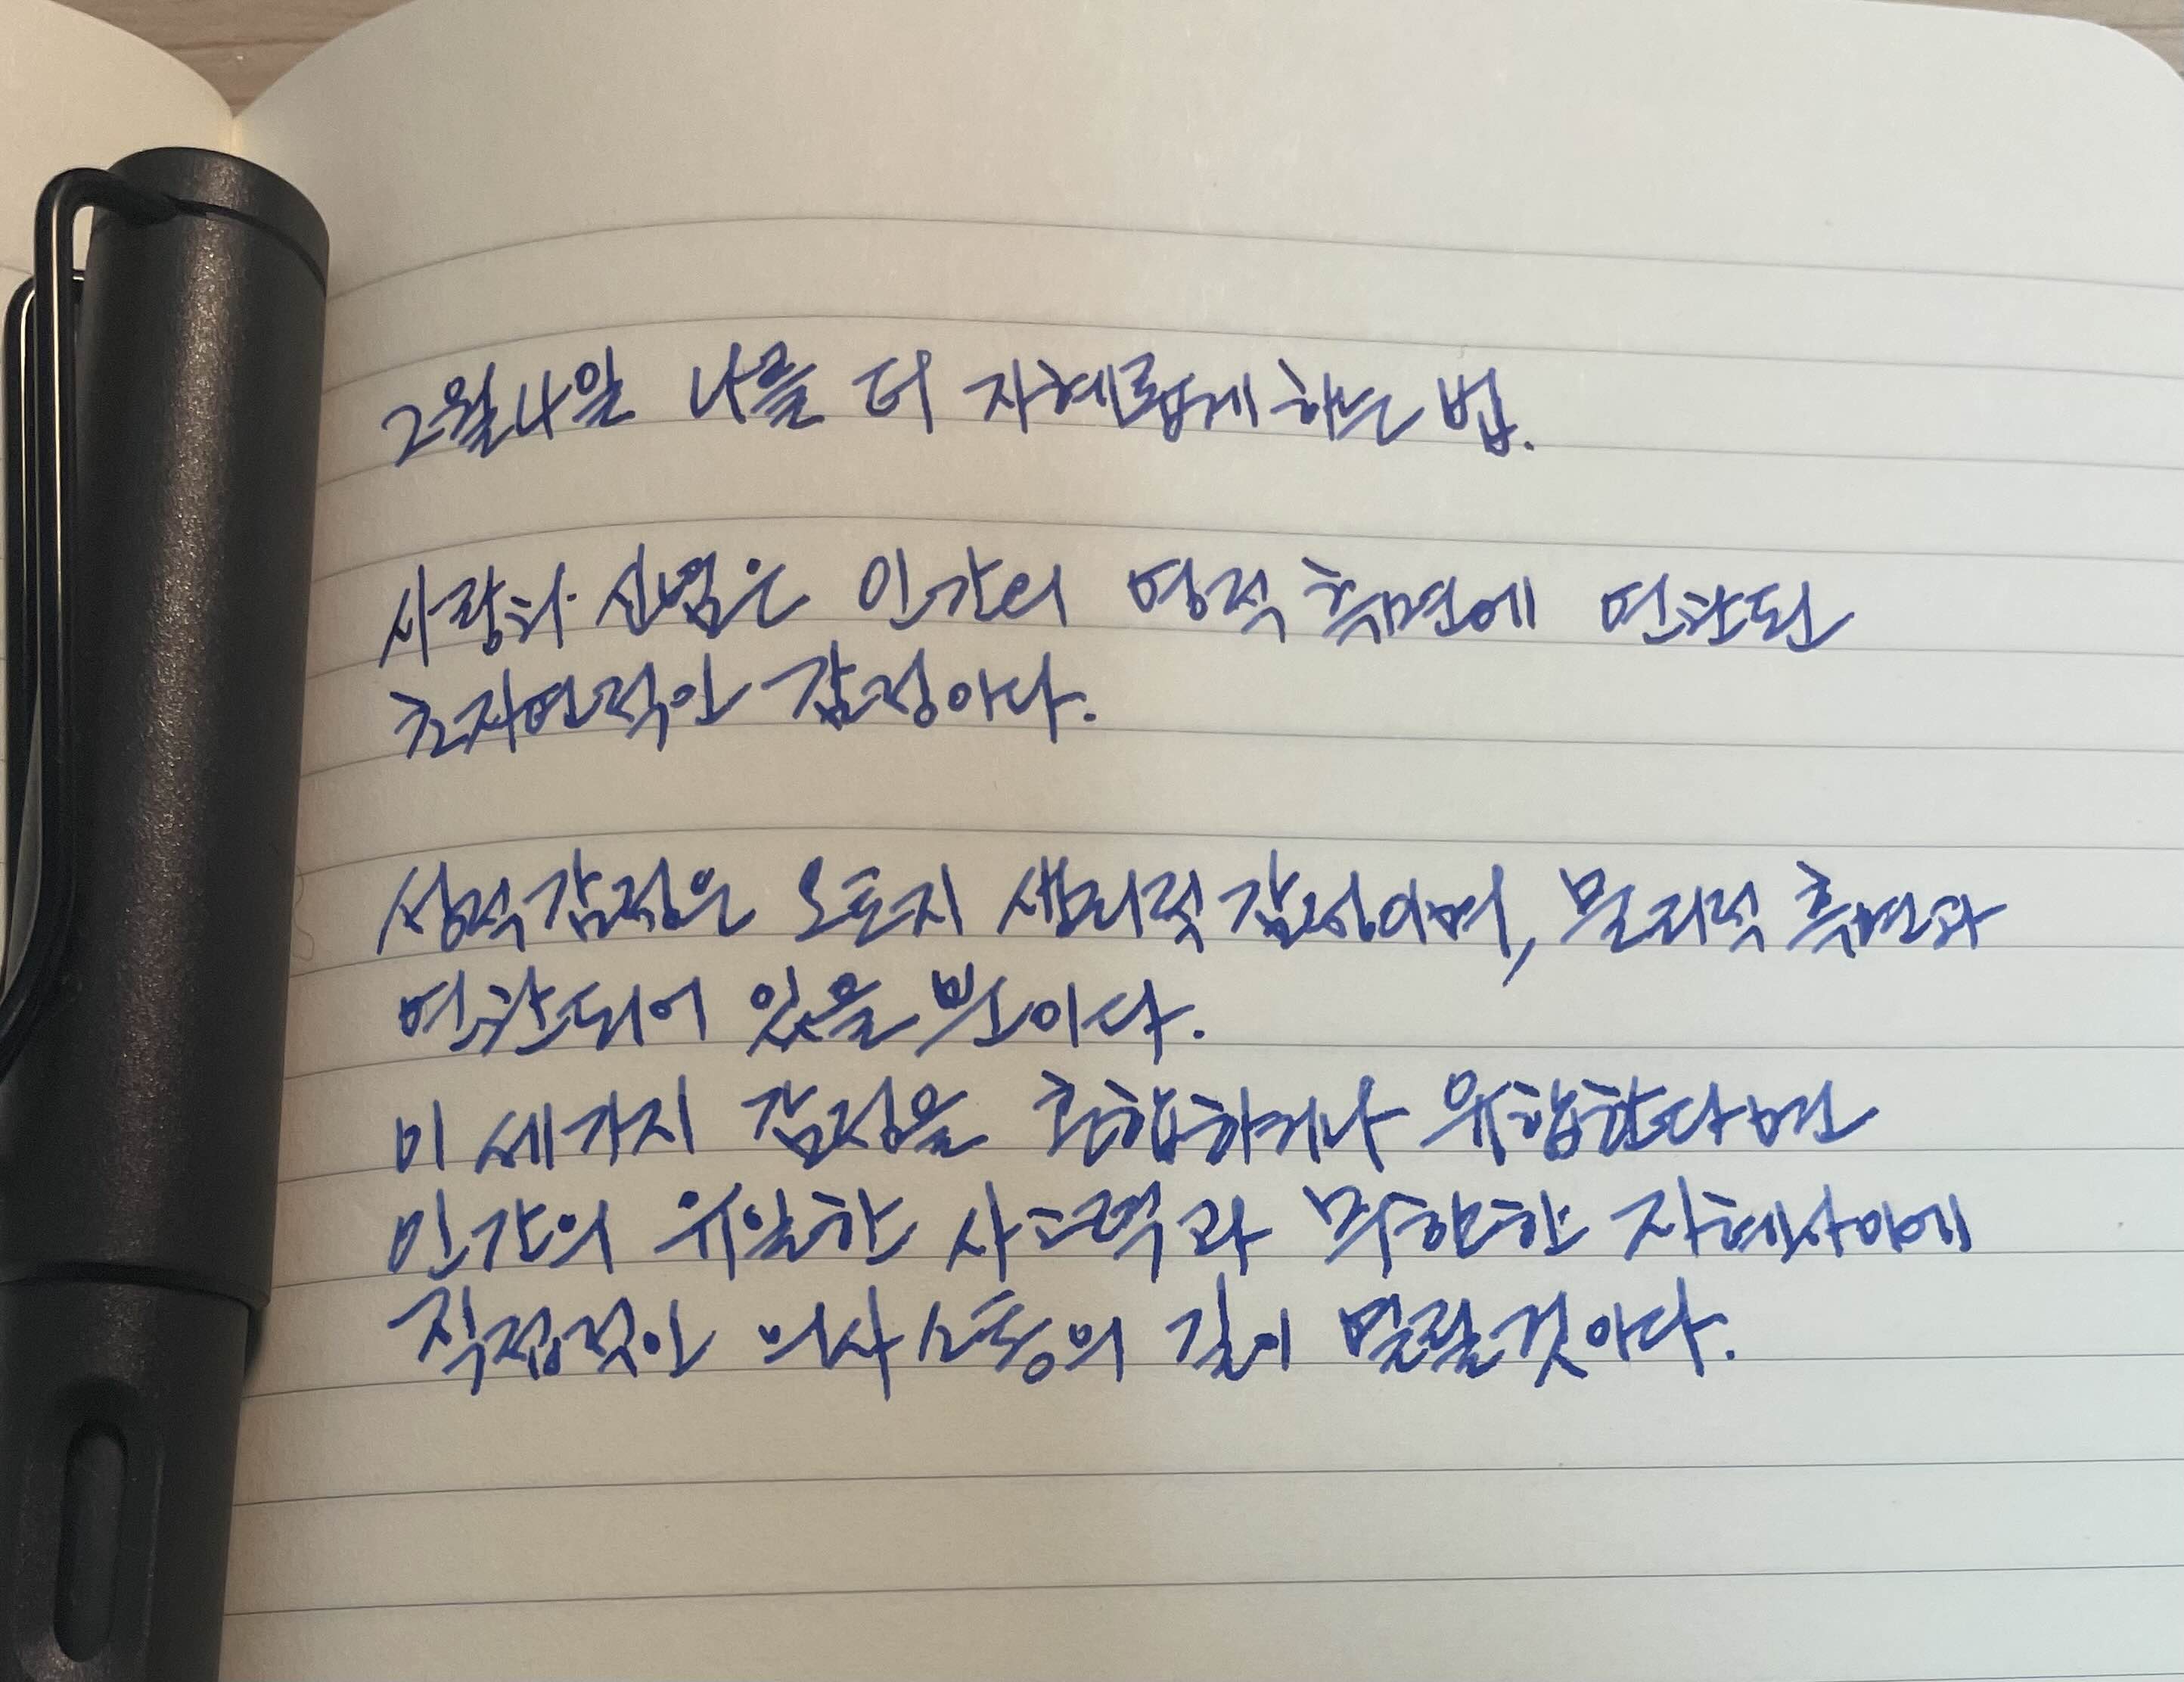 2월4일 나를 더 지혜롭게 하는 법.
사랑과 신념은 인간의 영적 측면에 연관된
초자연적인 감정이다.
성적 감정은 오로지 생리적 감정이며, 물리적 측면과
연관되어 있을 뿐이다.
이 세가지 감정을 혼합하거나 융합한다면
인간의 유일한 사고력과 무한한 지혜사이에
직접적인 의사 소통의 길이 열릴것이다.